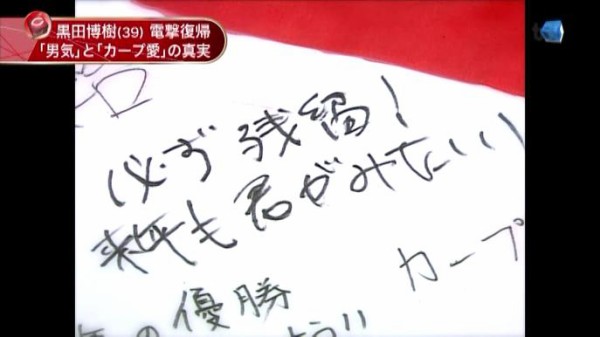 黒田博樹(39) 電撃復帰
「男気」と「カープ愛」の真実
必ず残留!
来年も君がみたい!!
カープ
の優勝